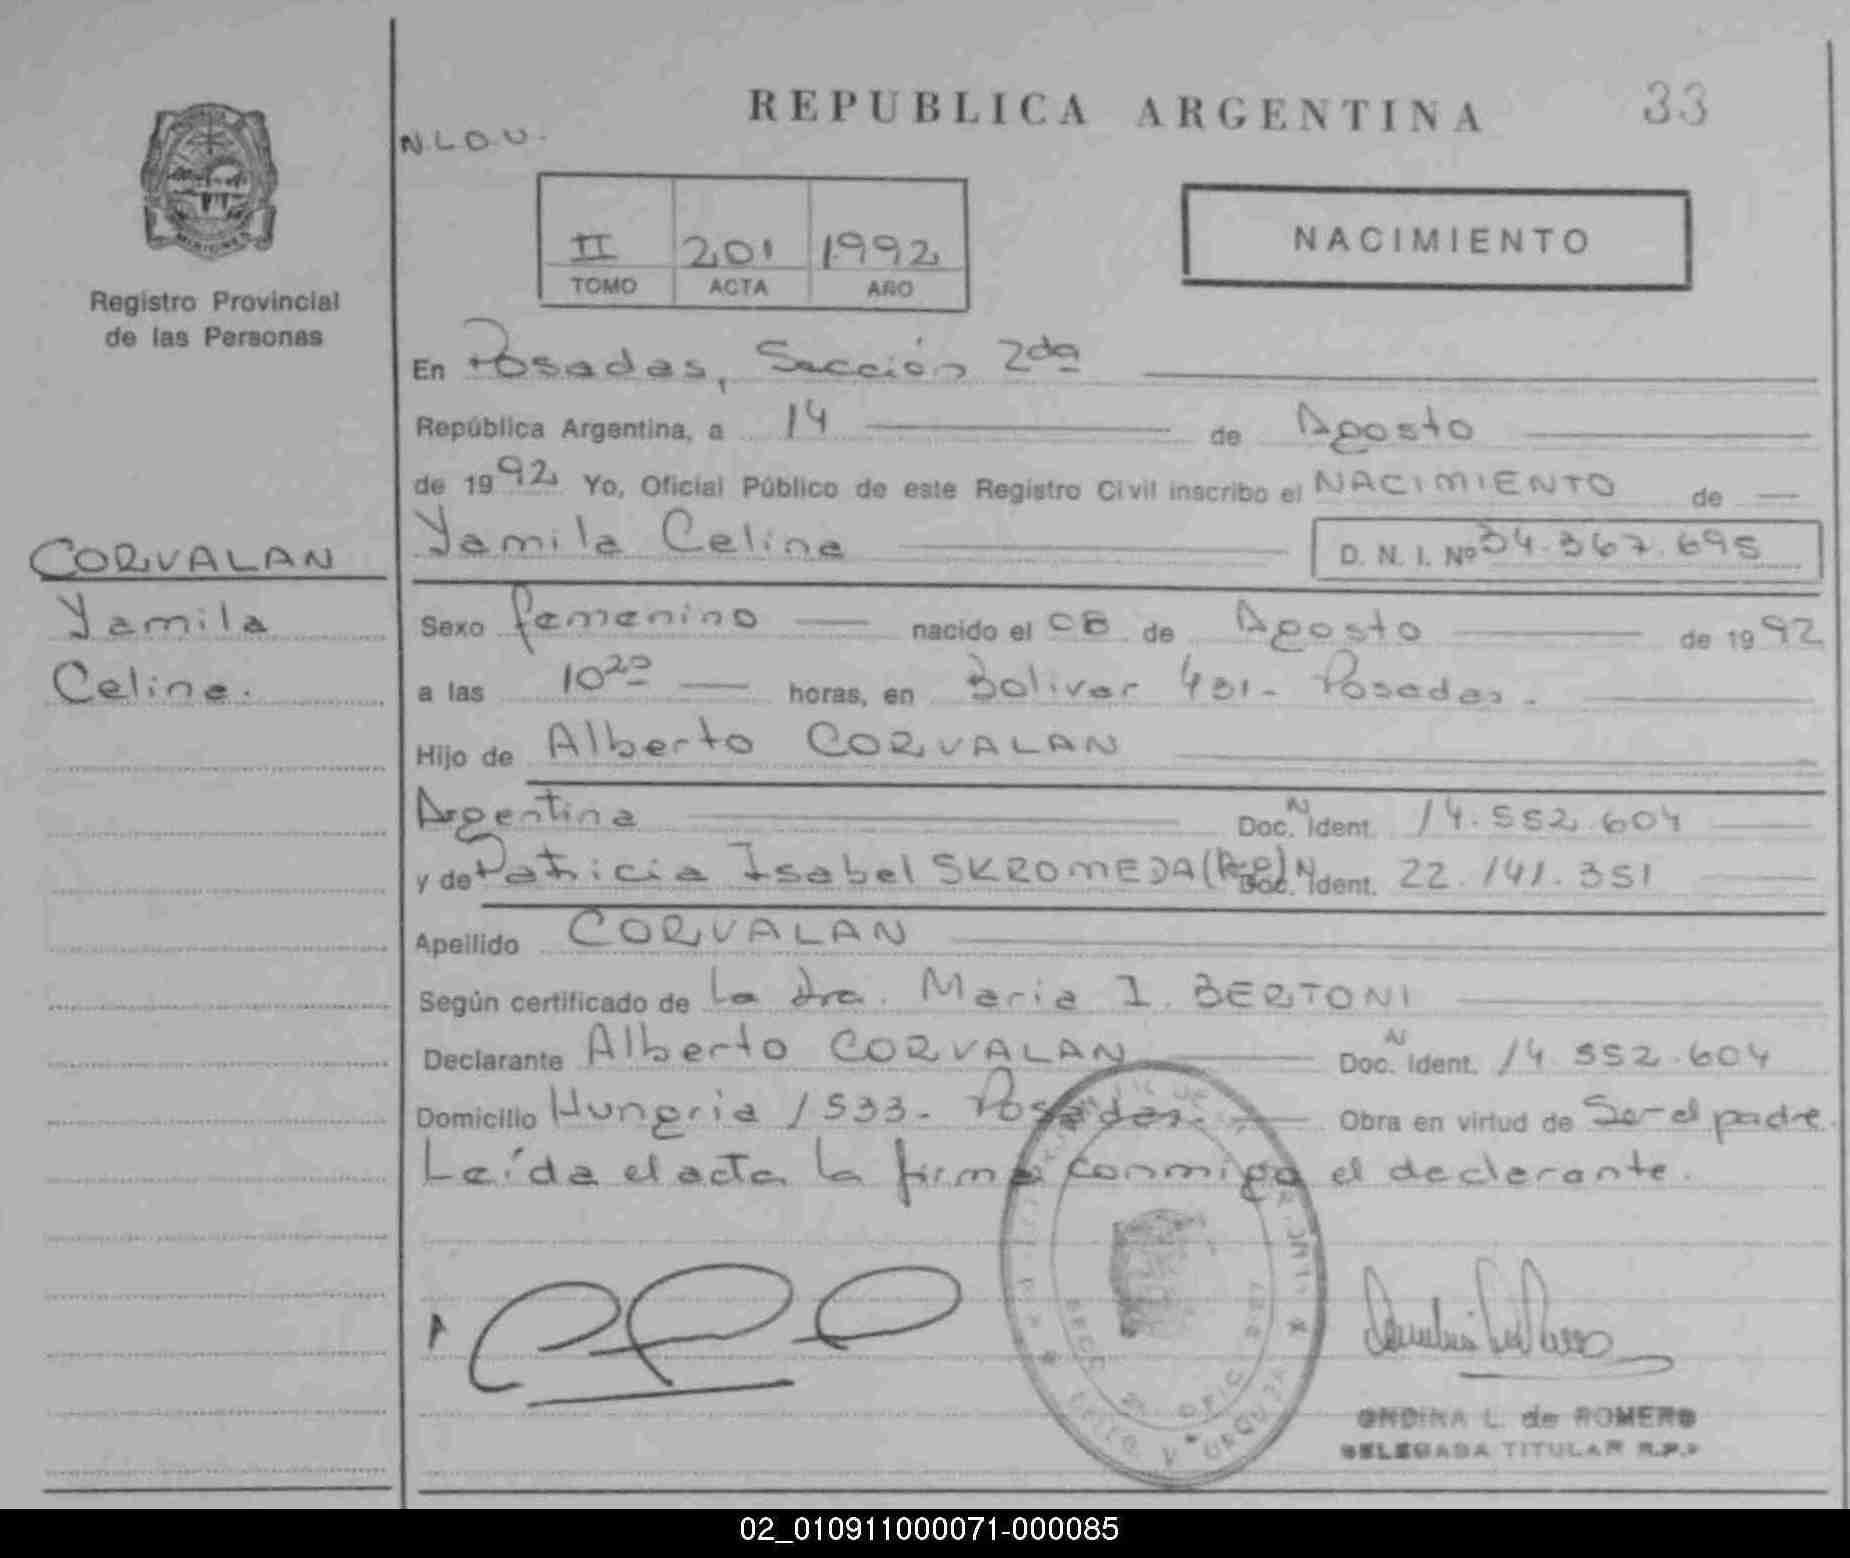 REPUBLICA ARGENTINA
33
N.L.O.U.
II 201 1992
TOMO ACTA AÑO
NACIMIENTO
MISIONES
Registro Provincial
de las Personas
En Posadas, Sección 2da
República Argentina, a 14 de Agosto
de 1992 Yo, Oficial Público de este Registro Civil inscribo el NACIMIENTO de
Yamila Celina D. N. I. Nº 34.367.695
CORVALAN
Yamila
Celina.
Sexo femenino nacido el 08 de Agosto de 1992
a las 10 20 horas, en Bolivar 431- Posadas.
Hijo de Alberto CORVALAN
Argentina Doc. N Ident. 14.552.604
y de Patricia Isabel SKROMEDA (Arg) Doc. N Ident. 22.141.351
Apellido CORVALAN
Según certificado de La dra. Maria I. BERTONI
Declarante Alberto CORVALAN Doc. N Ident. 14.552.604
Domicilio Hungria 1533- Posadas. Obra en virtud de Ser el padre.
Leída el acta la firma conmigo el declarante.
ONDINA L. de ROMERO
DELEGADA TITULAR R.P.P
02_010911000071-000085